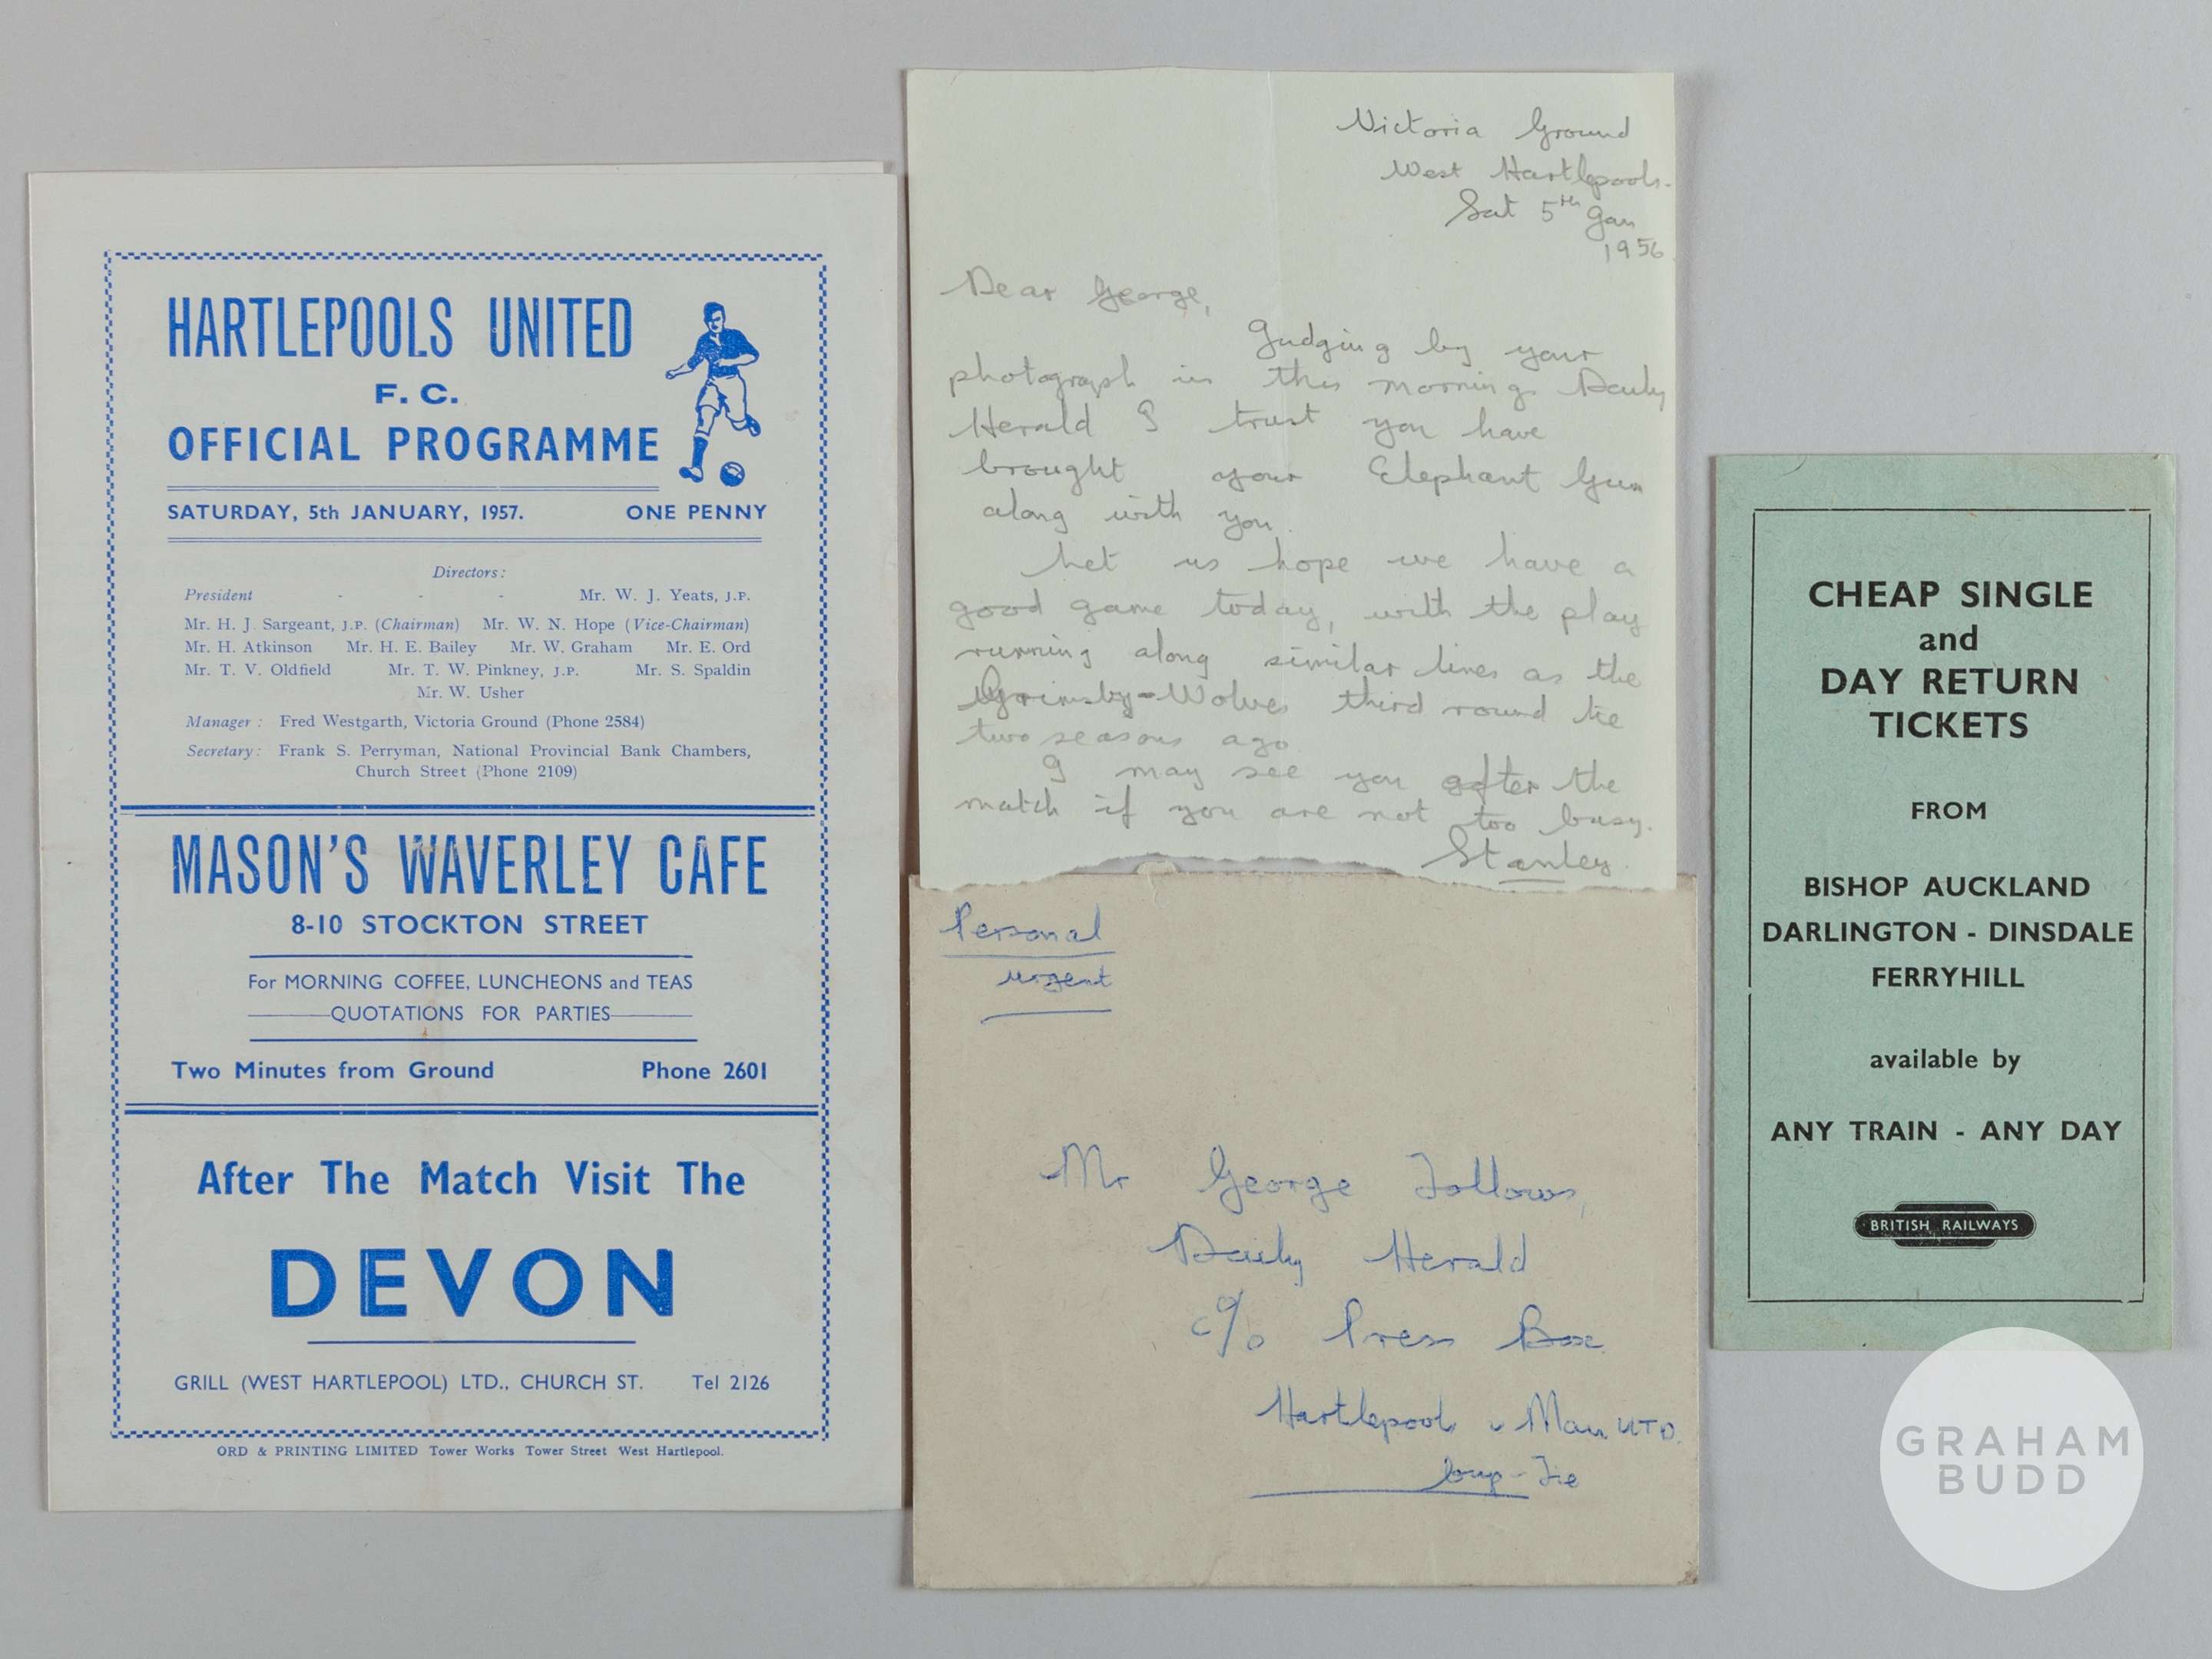 HARTLEPOOLS UNITED
F. C.
OFFICIAL PROGRAMME
SATURDAY, 5th JANUARY, 1957. ONE PENNY
Directors:
President - - - Mr. W. J. Yeats, J.P.
Mr. H. J. Sargeant, J.P. (Chairman) Mr. W. N. Hope (Vice-Chairman)
Mr. H. Atkinson Mr. H. E. Bailey Mr. W. Graham Mr. E. Ord
Mr. T. V. Oldfield Mr. T. W. Pinkney, J.P. Mr. S. Spaldin
Mr. W. Usher
Manager : Fred Westgarth, Victoria Ground (Phone 2584)
Secretary : Frank S. Perryman, National Provincial Bank Chambers,
Church Street (Phone 2109)
MASON'S WAVERLEY CAFE
8-10 STOCKTON STREET
For MORNING COFFEE, LUNCHEONS and TEAS
QUOTATIONS FOR PARTIES
Two Minutes from Ground Phone 2601
After The Match Visit The
DEVON
GRILL (WEST HARTLEPOOL) LTD., CHURCH ST. Tel 2126
ORD & PRINTING LIMITED Tower Works Tower Street West Hartlepool.
Victoria Ground
West Hartlepools.
Sat 5th Jan
1956
Dear George,
Judging by your
photograph in this mornings Daily
Herald I trust you have
brought your Elephant Gun
along with you.
Let us hope we have a
good game today, with the play
running along similar lines as the
Grimsby-Wolves third round tie
two seasons ago
I may see you after the
match if you are not too busy.
Stanley.
Personal
urgent
Mr George Follows,
Daily Herald
c/o Press Box
Hartlepools v Man UTD.
Cup-Tie
CHEAP SINGLE
and
DAY RETURN
TICKETS
FROM
BISHOP AUCKLAND
DARLINGTON - DINSDALE
FERRYHILL
available by
ANY TRAIN - ANY DAY
BRITISH RAILWAYS
GRAHAM
BUDD